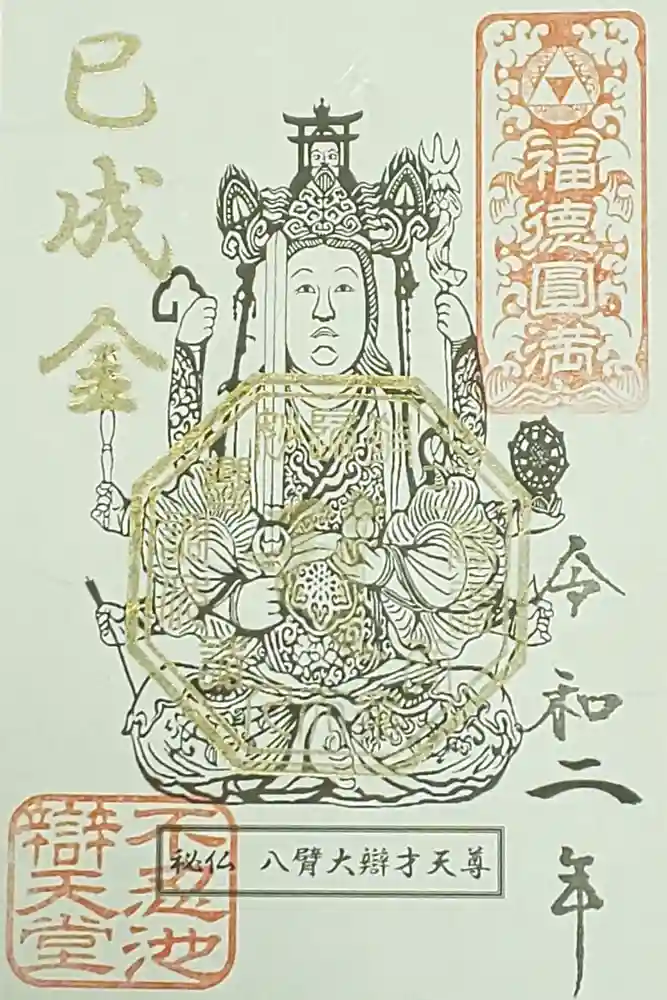 福徳圓満
巳成金
令和二年
秘仏 八臂大辯才天尊
不忍池
辯天堂